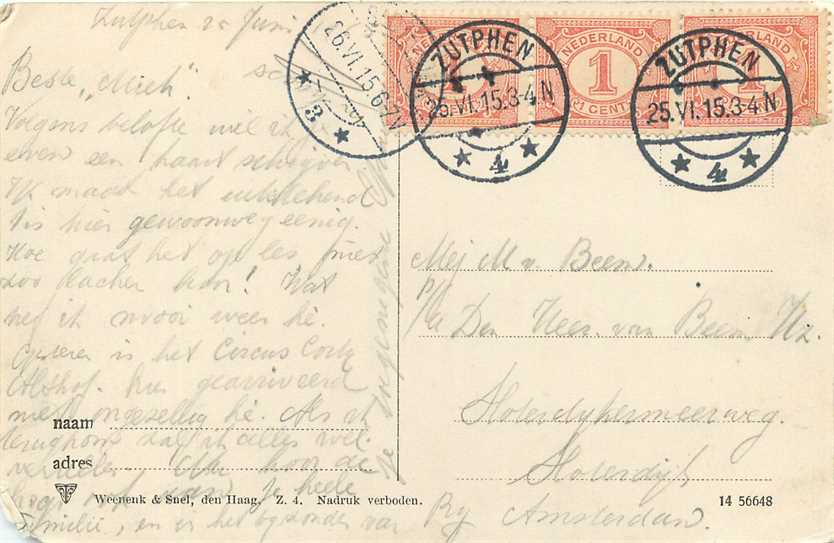 Zutphen 25 Juni
Beste "Mich"
Volgens belofte wil ik
even een kaart schrijven
Ik maak het uitstekend
't is hier gewoonweg eenig.
Hoe gaat het op les
zoo hoor! Wat
heb ik mooi weer hè.
is het Circus Corty
Althof. hier gearriveerd
hè. Als ik
terugkom zal ik alles wel
vertellen.
hoor de
je heele
familie, en in het bijzonder van
ZUTPHEN
25.VI.15.3-4 N
4
NEDERLAND
1
1 CENT
ZUTPHEN
25.VI.15.3-4 N
4
26.VI.15.6-7V
3
Mej M v. Beem.
p/a Den Heer van Beem Hz.
Sloterdijkermeerweg.
Sloterdijk.
By Amsterdam.
naam
adres
Weenenk & Snel, den Haag. Z. 4. Nadruk verboden.
14 56648